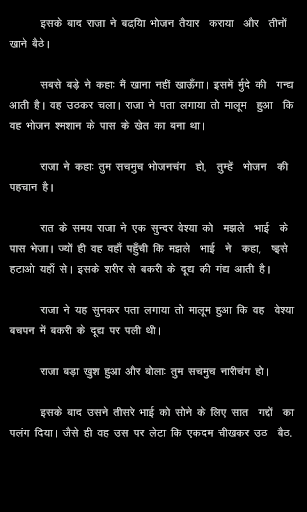 इसके बाद राजा ने बढ़िया भोजन तैयार कराया और तीनों
खाने बैठे।
सबसे बड़े ने कहा: मैं खाना नहीं खाऊँगा। इसमें मुर्दे की गन्ध
आती है। वह उठकर चला। राजा ने पता लगाया तो मालूम हुआ कि
वह भोजन श्मशान के पास के खेत का बना था।
राजा ने कहा: तुम सचमुच भोजनचंग हो, तुम्हें भोजन की
पहचान है।
रात के समय राजा ने एक सुन्दर वेश्या को मझले भाई के
पास भेजा। ज्यों ही वह वहाँ पहुँची कि मझले भाई ने कहा, ष्इसे
हटाओ यहाँ से। इसके शरीर से बकरी के दूध की गंध आती है।
राजा ने यह सुनकर पता लगाया तो मालूम हुआ कि वह वेश्या
बचपन में बकरी के दूध पर पली थी।
राजा बड़ा खुश हुआ और बोला: तुम सचमुच नारीचंग हो।
इसके बाद उसने तीसरे भाई को सोने के लिए सात गद्दों का
पलंग दिया। जैसे ही वह उस पर लेटा कि एकदम चीखकर उठ बैठ.